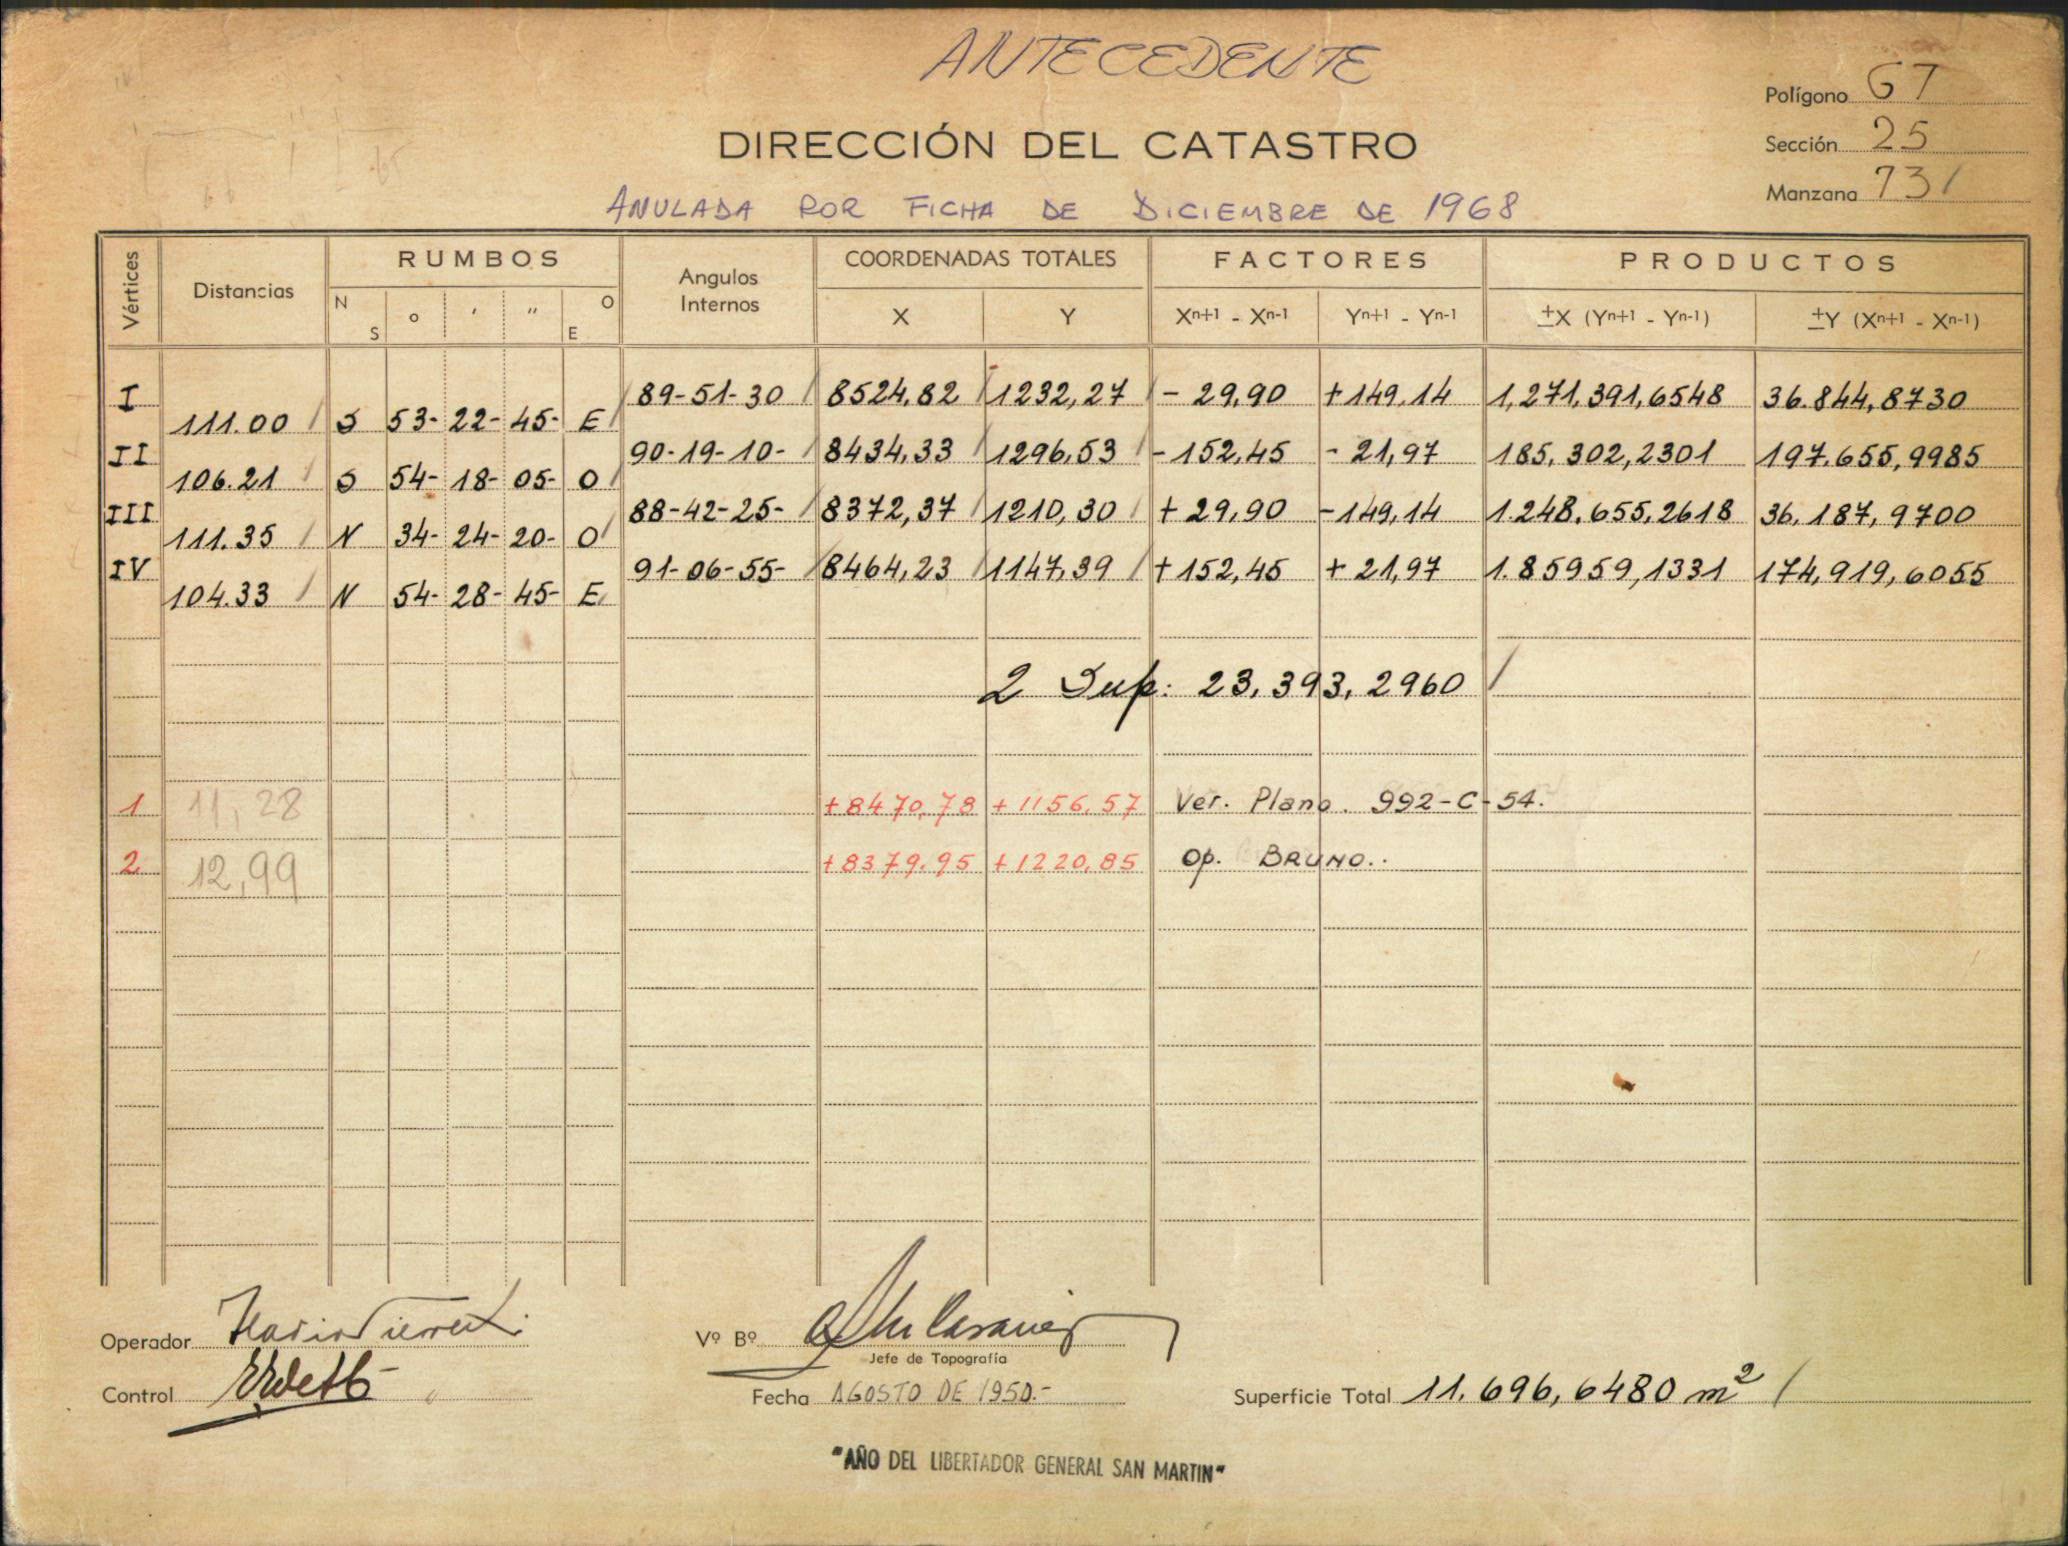 ANTECEDENTE
Polígono G7
DIRECCIÓN DEL CATASTRO
Sección 25
Manzana 731
ANULADA POR FICHA DE DICIEMBRE DE 1968
Vértices Distancias RUMBOS Angulos Internos COORDENADAS TOTALES FACTORES PRODUCTOS
N S o ' " O E X Y Xn+1 - Xn-1 Yn+1 - Yn-1 ±X (Yn+1 - Yn-1) ±Y (Xn+1 - Xn-1)
I 89-51-30 8524,82 1232,27 - 29,90 +149,14 1,271,391,6548 36.844,8730
111.00 S 53- 22- 45- E
II 90-19-10- 8434,33 1296,53 -152,45 - 21,97 185,302,2301 197.655,9985
106.21 S 54- 18- 05- O
III 88-42-25- 8372,37 1210,30 + 29,90 -149,14 1.248.655,2618 36,187,9700
111.35 N 34- 24- 20- O
IV 91-06-55- 8464,23 1147,39 +152,45 + 21,97 1.85959,1331 174,919,6055
104.33 N 54- 28- 45- E
2 Sup: 23,393,2960
1 11,28 +8470,78 +1156,57 Ver. Plano. 992-C-54.
2 12,99 +8379.95 +1220,85 Op. BRUNO..
Operador
Vº Bº
Jefe de Topografía
Control
Fecha AGOSTO DE 1950.-
Superficie Total 11.696,6480 m²
"AÑO DEL LIBERTADOR GENERAL SAN MARTIN"